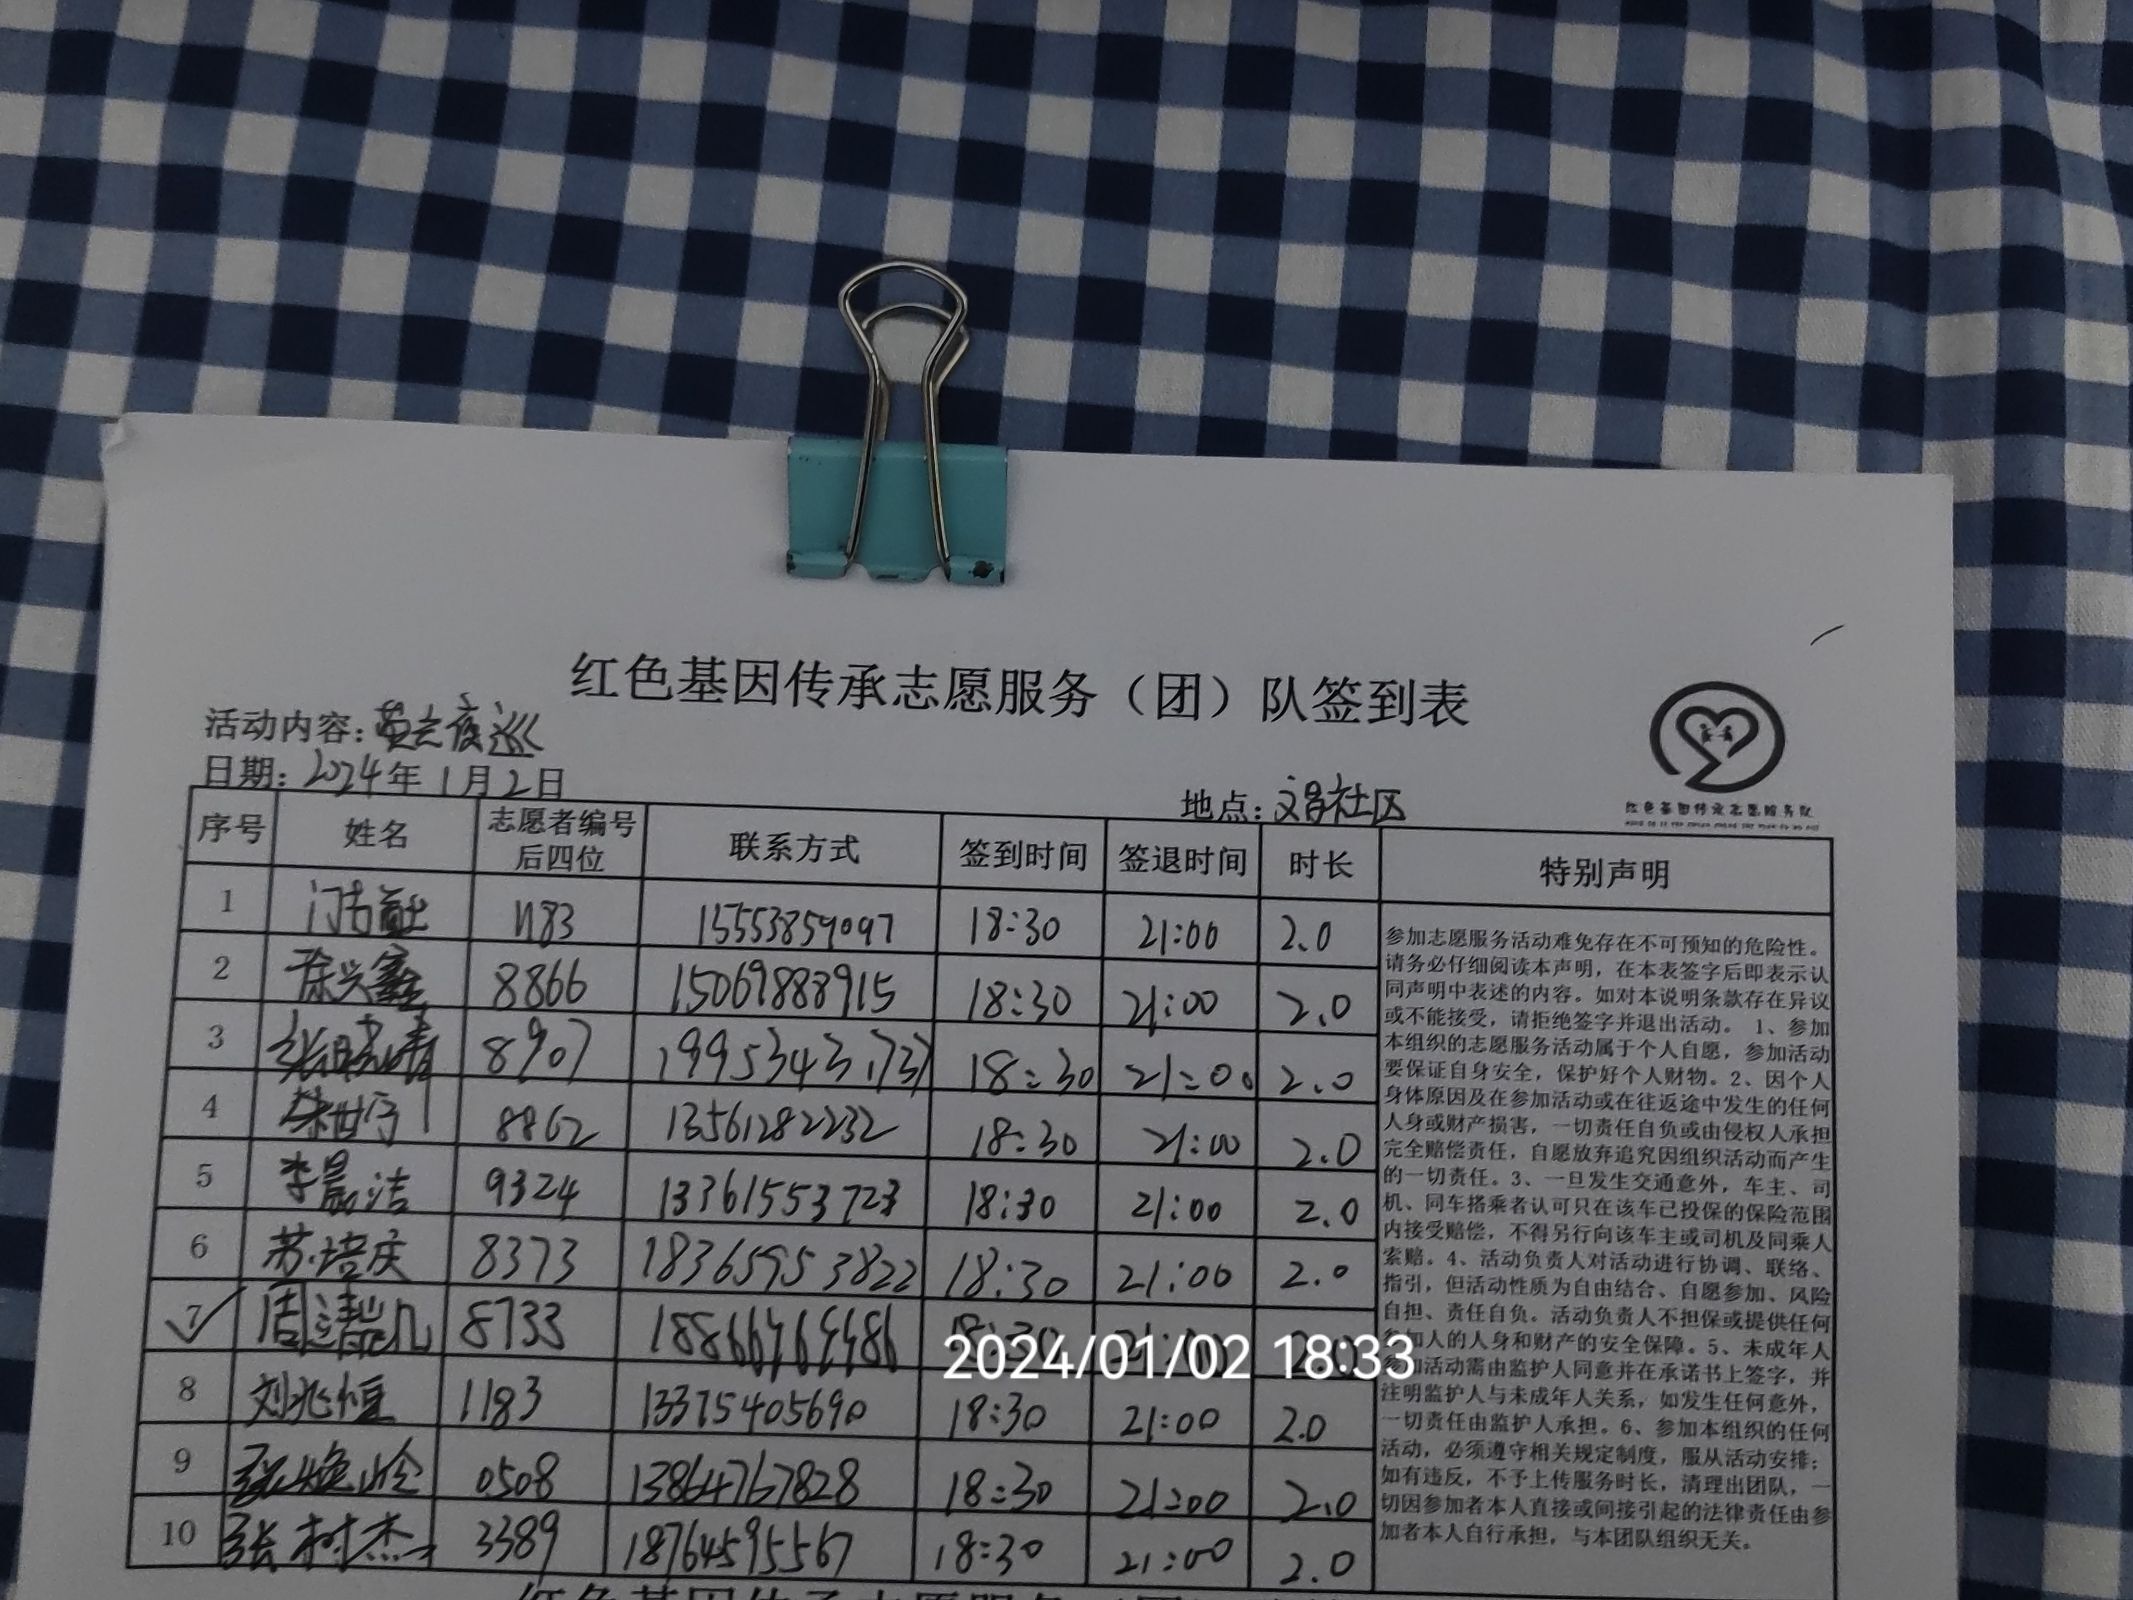 红色基因传承志愿服务（团）队签到表
活动内容：黄云夜巡
日期：2024年1月2日
地点：文昌社区
红色基因传承志愿服务队
序号 姓名 志愿者编号后四位 联系方式 签到时间 签退时间 时长 特别声明
1 1183 13553859097 18:30 21:00 2.0
2 徐兴鑫 8866 15069888915 18:30 21:00 2.0
3 张晓涛 8907 19953431737 18:30 21:00 2.0
4 8862 13561282232 18:30 21:00 2.0
5 李晨洁 9324 13361553723 18:30 21:00 2.0
6 苏培庆 8373 18365953822 18:30 21:00 2.0
7 周 8733 18:30 21:00 2.0
8 刘兆恒 1183 13375405690 18:30 21:00 2.0
9 0508 13864767828 18:30 21:00 2.0
10 张树杰 3389 18764595567 18:30 21:00 2.0
参加志愿服务活动难免存在不可预知的危险性。
请务必仔细阅读本声明，在本表签字后即表示认
同声明中表述的内容。如对本说明条款存在异议
或不能接受，请拒绝签字并退出活动。 1、参加
本组织的志愿服务活动属于个人自愿，参加活动
要保证自身安全，保护好个人财物。2、因个人
身体原因及在参加活动或在往返途中发生的任何
人身或财产损害，一切责任自负或由侵权人承担
完全赔偿责任，自愿放弃追究因组织活动而产生
的一切责任。3、一旦发生交通意外，车主、司
机、同车搭乘者认可只在该车已投保的保险范围
内接受赔偿，不得另行向该车主或司机及同乘人
索赔。4、活动负责人对活动进行协调、联络、
指引，但活动性质为自由结合、自愿参加、风险
自担、责任自负。活动负责人不担保或提供任何
参加人的人身和财产的安全保障。5、未成年人
参加活动需由监护人同意并在承诺书上签字，并
注明监护人与未成年人关系，如发生任何意外，
一切责任由监护人承担。6、参加本组织的任何
活动，必须遵守相关规定制度，服从活动安排；
如有违反，不予上传服务时长，清理出团队，一
切因参加者本人直接或间接引起的法律责任由参
加者本人自行承担，与本团队组织无关。
2024/01/02 18:33
红色基因传承志愿服务（团）